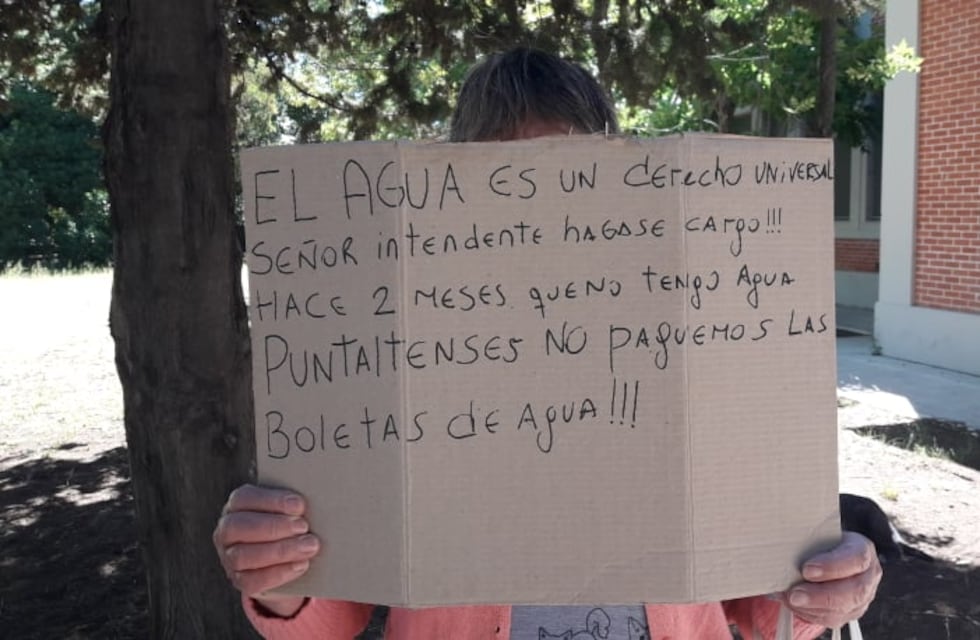 EL AGUA ES UN derecho UNIVERSAL
SEÑOR intendente hAGASE cargo!!!
HACE 2 MESES queno tengo Agua
PUNTAltENSES NO PAguEMOS LAS
BoletAS de Agua!!!